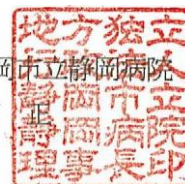 岡市立静岡病院
正
地方独立
静岡市立
静岡病院
理事長印